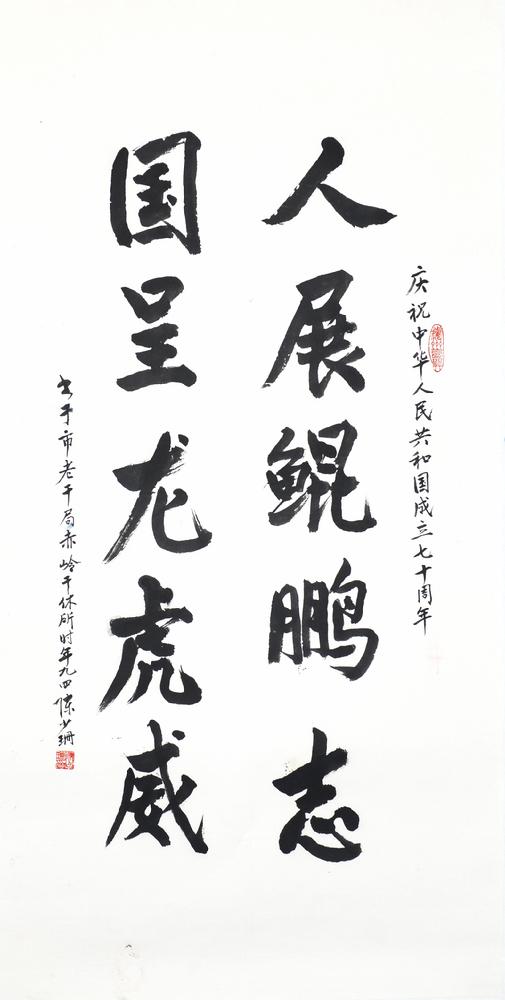 庆祝中华人民共和国成立七十周年
人展鲲鹏志
国呈龙虎威
书于市老干局赤岭干休所时年九四陈少珊